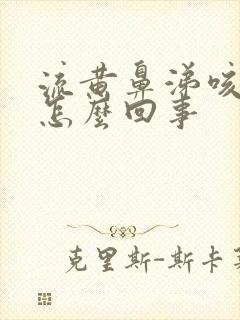 流黄鼻涕咳
怎麽回事
克里斯-斯卡